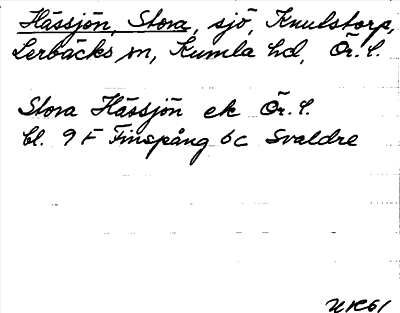 Hässjön, Stora, sjö, Knutstorp,
Lerbäcks sn, Kumla hd, Ör. l.
Stora Hässjön ek Ör. l.
bl. 9 F Finspång 6 c Svaldre